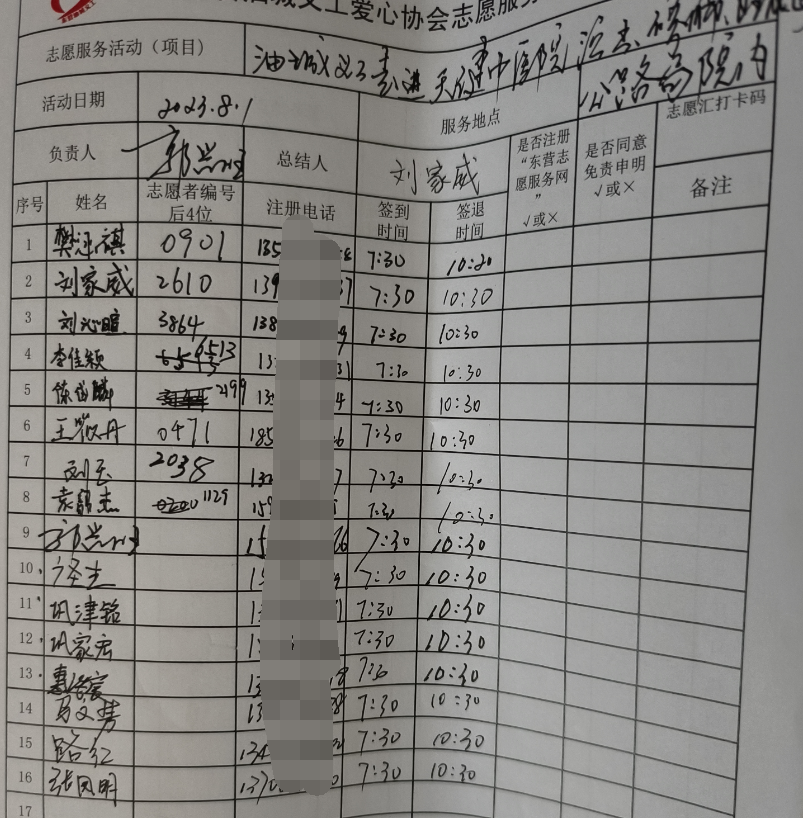 油城义工爱心协会志愿服务
志愿服务活动（项目） 油城义工走进天健中医院
公路局院内
活动日期 2023.8.1 服务地点 志愿汇打卡码
负责人 总结人 刘家威 是否注册“东营志愿服务网” √或× 是否同意免责申明 √或× 备注
序号 姓名 志愿者编号后4位 注册电话 签到时间 签退时间
1 樊泽祺 0901 135 7:30 10:20
2 刘家威 2610 139 37 7:30 10:30
3 刘沁暄 3864 138 9 7:30 10:30
4 李佳颖 6513 13 31 7:30 10:30
5 2199 13 4 7:30 10:30
6 王敬丹 0471 185 6 7:30 10:30
7 刘玉 2038 132 7 7:30 10:30
8 袁韶杰 1129 159 7:30 10:30
9 15 26 7:30 10:30
10 1 7:30 10:30
11 巩津铭 1 1 7:30 10:30
12 巩家宏 1 7:30 10:30
13 13 8 7:30 10:30
14 马文隽 13 38 7:30 10:30
15 路红 134 7:30 10:30
16 张凤明 1370 0 7:30 10:30
17